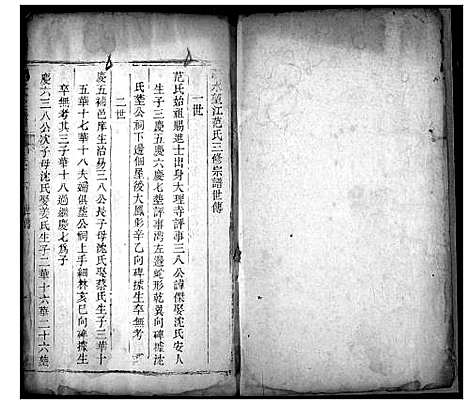 水蓮江范氏三修宗譜世傳
一世
范氏始祖賜進士出身大理寺評事三八公諱傑娶沈氏安人
生子三慶五慶六慶七塟評事湾左邊蛇形乾巽向碑據沈
氏塟公祠下邊個屋後大鳳形辛乙向碑據生卒無考
二世
慶五補邑庠生治易三八公長子母沈氏娶蔡氏生子三華十
五華十七華十八夫婦俱塟公祠上手細林亥巳向碑據生
卒無考其三子華十八過繼慶七為子
慶六三八公次子母沈氏娶姜氏生子二華十六華二十六塟